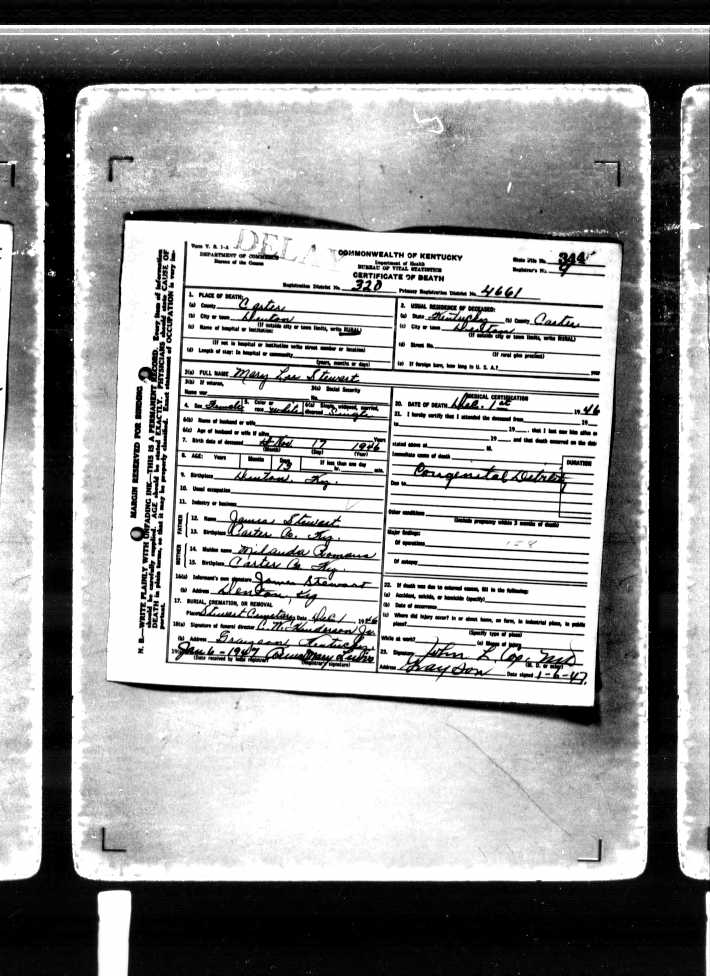 Form V. S. 1-A
DELAY
DEPARTMENT OF COMMERCE
Bureau of the Census
COMMONWEALTH OF KENTUCKY
Department of Health
BUREAU OF VITAL STATISTICS
CERTIFICATE OF DEATH
State File No. 344
Registrar's No. 9
Registration District No. 320 Primary Registration District No. 4661
1. PLACE OF DEATH:
(a) County Carter
(b) City or town Denton
(If outside city or town limits, write RURAL)
(c) Name of hospital or institution:
(If not in hospital or institution write street number or location)
(d) Length of stay: In hospital or community
(years, months or days)
2. USUAL RESIDENCE OF DECEASED:
(a) State Kentucky (b) County Carter
(c) City or town Denton
(If outside city or town limits, write RURAL)
(d) Street No.
(If rural give precinct)
(e) If foreign born, how long in U. S. A.? year
3(a) FULL NAME Mary Lee Stewart
3(b) If veteran,
Name war
3(c) Social Security
No.
4. Sex Female 5. Color or race white 6(a) Single, widowed, married, divorced Single
6(b) Name of husband or wife
6(c) Age of husband or wife if alive Years
7. Birth date of deceased Nov 17 1946
(Month) (Day) (Year)
8. AGE: Years Months Days 13 If less than one day
hr. min.
9. Birthplace Denton, Ky.
10. Usual occupation
11. Industry or business
FATHER
12. Name James Stewart
13. Birthplace Carter Co. Ky.
MOTHER
14. Maiden name Milanda Romans
15. Birthplace Carter Co Ky.
16(a) Informant's own signature James Stewart
(b) Address Denton, Ky
17. BURIAL, CREMATION, OR REMOVAL
Place Stewart Cemetery Date Dec 1 1946
18(a) Signature of funeral director C. W. Henderson Jr.
(b) Address Grayson Kentucky
19(a) Jan 6-1947
(Date received by local registrar) (Registrar's signature)
MEDICAL CERTIFICATION
20. DATE OF DEATH Dec. 1st 1946
21. I hereby certify that I attended the deceased from 19
to 19 , that I last saw him alive on
19 , and that death occurred on the date
stated above at M.
Immediate cause of death
DURATION
Congenital Debility
Due to
Other conditions
(Include pregnancy within 3 months of death)
Major findings:
Of operations
Of autopsy
22. If death was due to external causes, fill in the following:
(a) Accident, suicide, or homicide (specify)
(b) Date of occurrence
(c) Where did injury occur? in or about home, on farm, in industrial place, in public
place?
(Specify type of place)
While at work? (e) Means of injury
23. Signature John L. Cop MD
(M. D. or other)
Address Grayson Date signed 1-6-47.
MARGIN RESERVED FOR BINDING
N. B.—WRITE PLAINLY WITH UNFADING INK—THIS IS A PERMANENT RECORD. Every item of information
should be carefully supplied. AGE should be stated EXACTLY. PHYSICIANS should state CAUSE OF
DEATH in plain terms, so that it may be properly classified. Exact statement of OCCUPATION is very im-
portant.